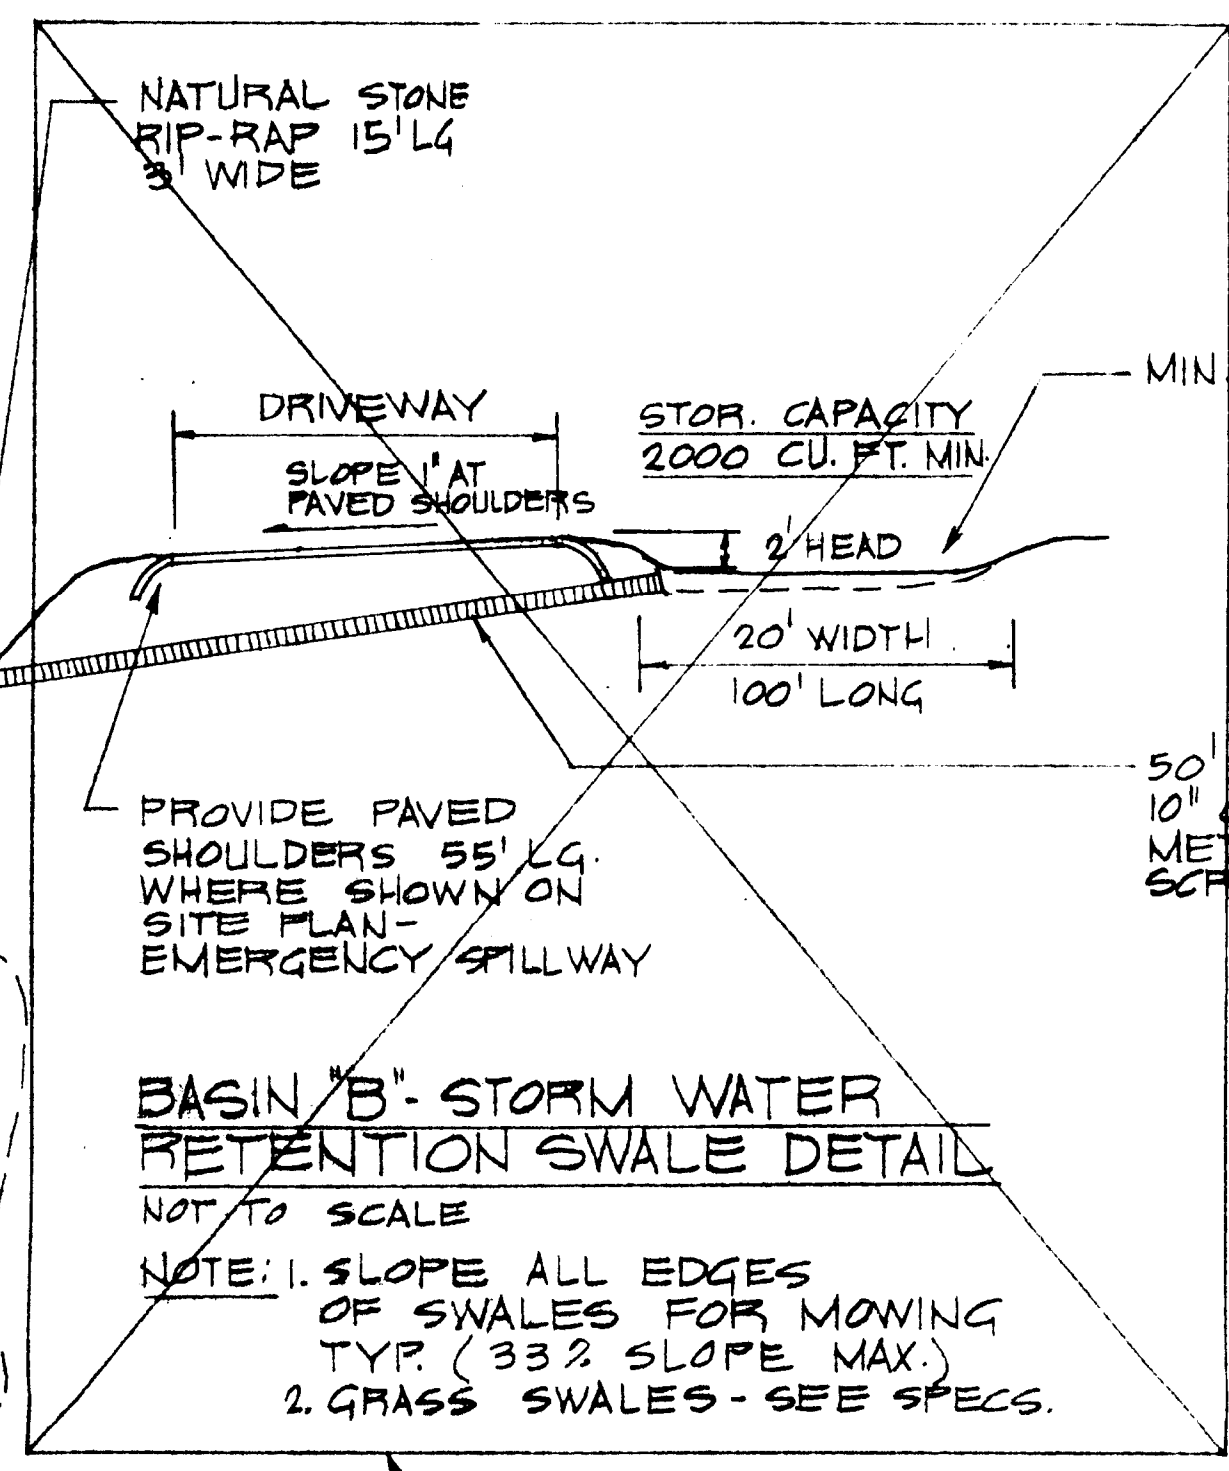 NATURAL STONE
RIP-RAP 15' LG
3' WIDE
MIN
DRIVEWAY
STOR. CAPACITY
2000 CU. FT. MIN.
SLOPE 1" AT
PAVED SHOULDERS
2' HEAD
20' WIDTH
100' LONG
50'
10"
MET
SCR
PROVIDE PAVED
SHOULDERS 55' LG.
WHERE SHOWN ON
SITE PLAN-
EMERGENCY SPILLWAY
BASIN "B"- STORM WATER
RETENTION SWALE DETAIL
NOT TO SCALE
NOTE: 1. SLOPE ALL EDGES
OF SWALES FOR MOWING
TYP. (33% SLOPE MAX.)
2. GRASS SWALES - SEE SPECS.